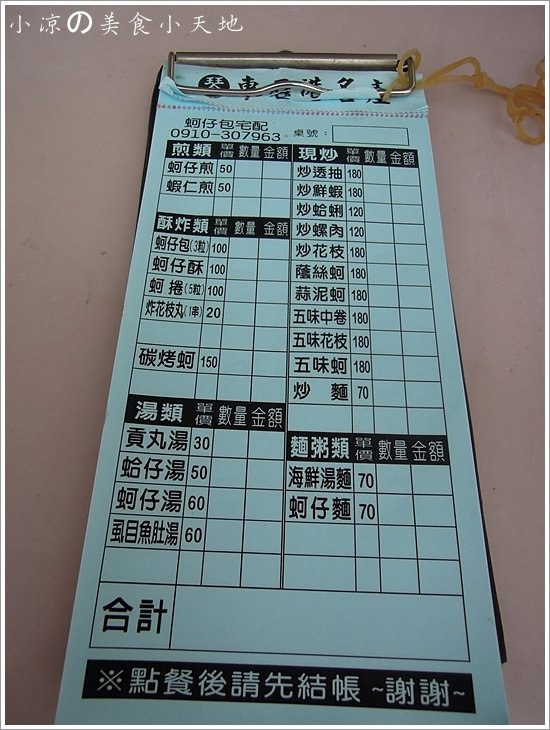 小涼の美食小天地
東石港名產
蚵仔包宅配
0910-307963
桌號：
煎類 單價 數量 金額
蚵仔煎 50
蝦仁煎 50
酥炸類 單價 數量 金額
蚵仔包(3粒) 100
蚵仔酥 100
蚵捲(5粒) 100
炸花枝丸(1串) 20
碳烤蚵 150
湯類 單價 數量 金額
貢丸湯 30
蛤仔湯 50
蚵仔湯 60
虱目魚肚湯 60
現炒 單價 數量 金額
炒透抽 180
炒鮮蝦 180
炒蛤蜊 120
炒螺肉 120
炒花枝 180
蔭絲蚵 180
蒜泥蚵 180
五味中卷 180
五味花枝 180
五味蚵 180
炒麵 70
麵粥類 單價 數量 金額
海鮮湯麵 70
蚵仔麵 70
合計
※點餐後請先結帳 ~謝謝~